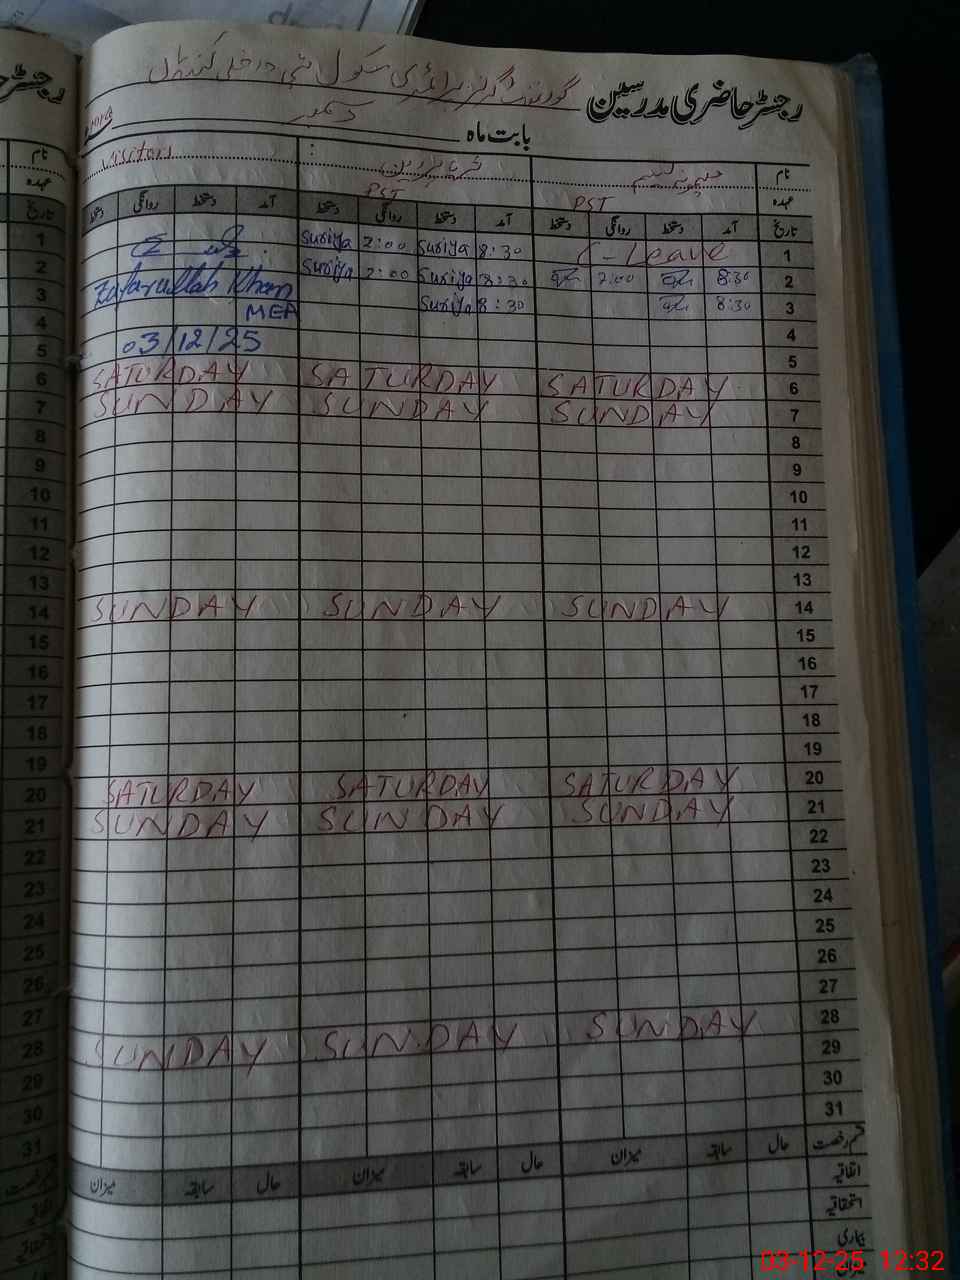 رجسٹر حاضری مدرسین
گورنمنٹ گرلز پرائمری سکول
بابت ماہ دسمبر
نام Visitors
عہدہ PST PST
تاریخ آمد دستخط روانگی دستخط آمد دستخط روانگی دستخط آمد دستخط روانگی دستخط
1 C-Leave 8:30 Suriya 2:00 Suriya
2 8:30 2:00 8:30 Suriya 2:00 Suriya Zafarullah Khan
3 8:30 8:30 Suriya MEA
4
5 03/12/25
6 SATURDAY SATURDAY SATURDAY
7 SUNDAY SUNDAY SUNDAY
8
9
10
11
12
13
14 SUNDAY SUNDAY SUNDAY
15
16
17
18
19
20 SATURDAY SATURDAY SATURDAY
21 SUNDAY SUNDAY SUNDAY
22
23
24
25
26
27
28 SUNDAY SUNDAY SUNDAY
29
30
31
قسم رخصت حال سابقہ میزان حال سابقہ میزان حال سابقہ میزان
اتفاقیہ
استحقاقیہ
بیماری
میزان
نام
عہدہ
تاریخ
1
2
3
4
5
6
7
8
9
10
11
12
13
14
15
16
17
18
19
20
21
22
23
24
25
26
27
28
29
30
31
03-12-25 12:32